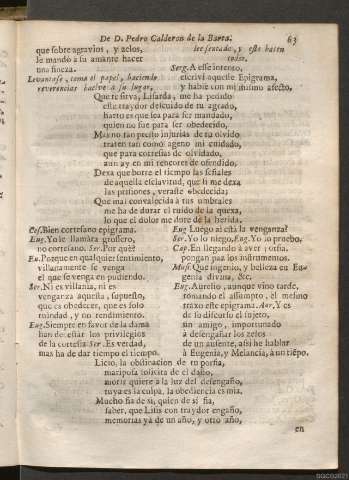 De D. Pedro Calderon de la Barca. 63
que sobre agravios, y zelos,
le mandò a su amante hacer
una fineza.
Levantase, toma el papel, haciendo
reverencias buelve à su lugar,
se sentado, y esto hacen
todos.
Serg. A esse intento,
escriví aqueste Epigrama,
y hable con mi mismo afecto,
Que te sirva, Lisarda, me ha pedido
este traydor descuido de tu agrado,
harto es que lea para ser mandado,
quien no fue para ser obedecido,
Mayno tan precito injurias de tu olvido
traten tan como ageno mi cuidado,
que para cortesias de olvidado,
aun ay en mi rencores de ofendido,
Dexa que borre el tiempo las señales
de aquella esclavitud, que si me dexa
las prisiones, veraste obedecida;
Que mal convalecida à tus umbrales
me ha de durar el ruido de la quexa,
lo que el dolor me dore de la herida.
Ces. Bien cortesano epigrama.
Eug. Yo le llamàra grosero,
no cortesano. Ser. Por què?
Eu. Porque en qualquier sentimiento,
villanamente se venga
el que se venga en pudiendo.
Ser. Ni es villania, ni es
venganza aquesta, supuesto,
que es obedecer, que es solo
rindad, y no rendimiento.
Eug. Siempre en favor de la dama
han de estàr los privilegios
de la cortesia. Ser. Es verdad,
mas ha de dar tiempo el tiempo.
Eug. Luego ai està la venganza?
Ser. Yo lo niego. Eug. Yo lo pruebo.
Cap. En llegando à aver porfia,
pongan paz los instrumentos.
Mus. Que ingenio, y belleza en Eu-
genia divina, &c.
Eug. Aurelio, aunque vino tarde,
tomando el assumpto, el mesmo
traxo esse epigrama. Aur. Y es
de su discurso el sujeto,
un amigo, importunado
à desengañar los zelos
de un ausente, assi he hablar
à Eugenia, y Melancia, à un tiẽpo.
Licio, la obstinacion de tu porfia,
mariposa solicita de el daño,
morir quiere à la luz del desengaño,
tuya es la culpa, la obediencia es mia.
Mucho fia de si, quien de si fia,
saber, que Lisis con traydor engaño,
memorias yà de un año, y otro año,
en